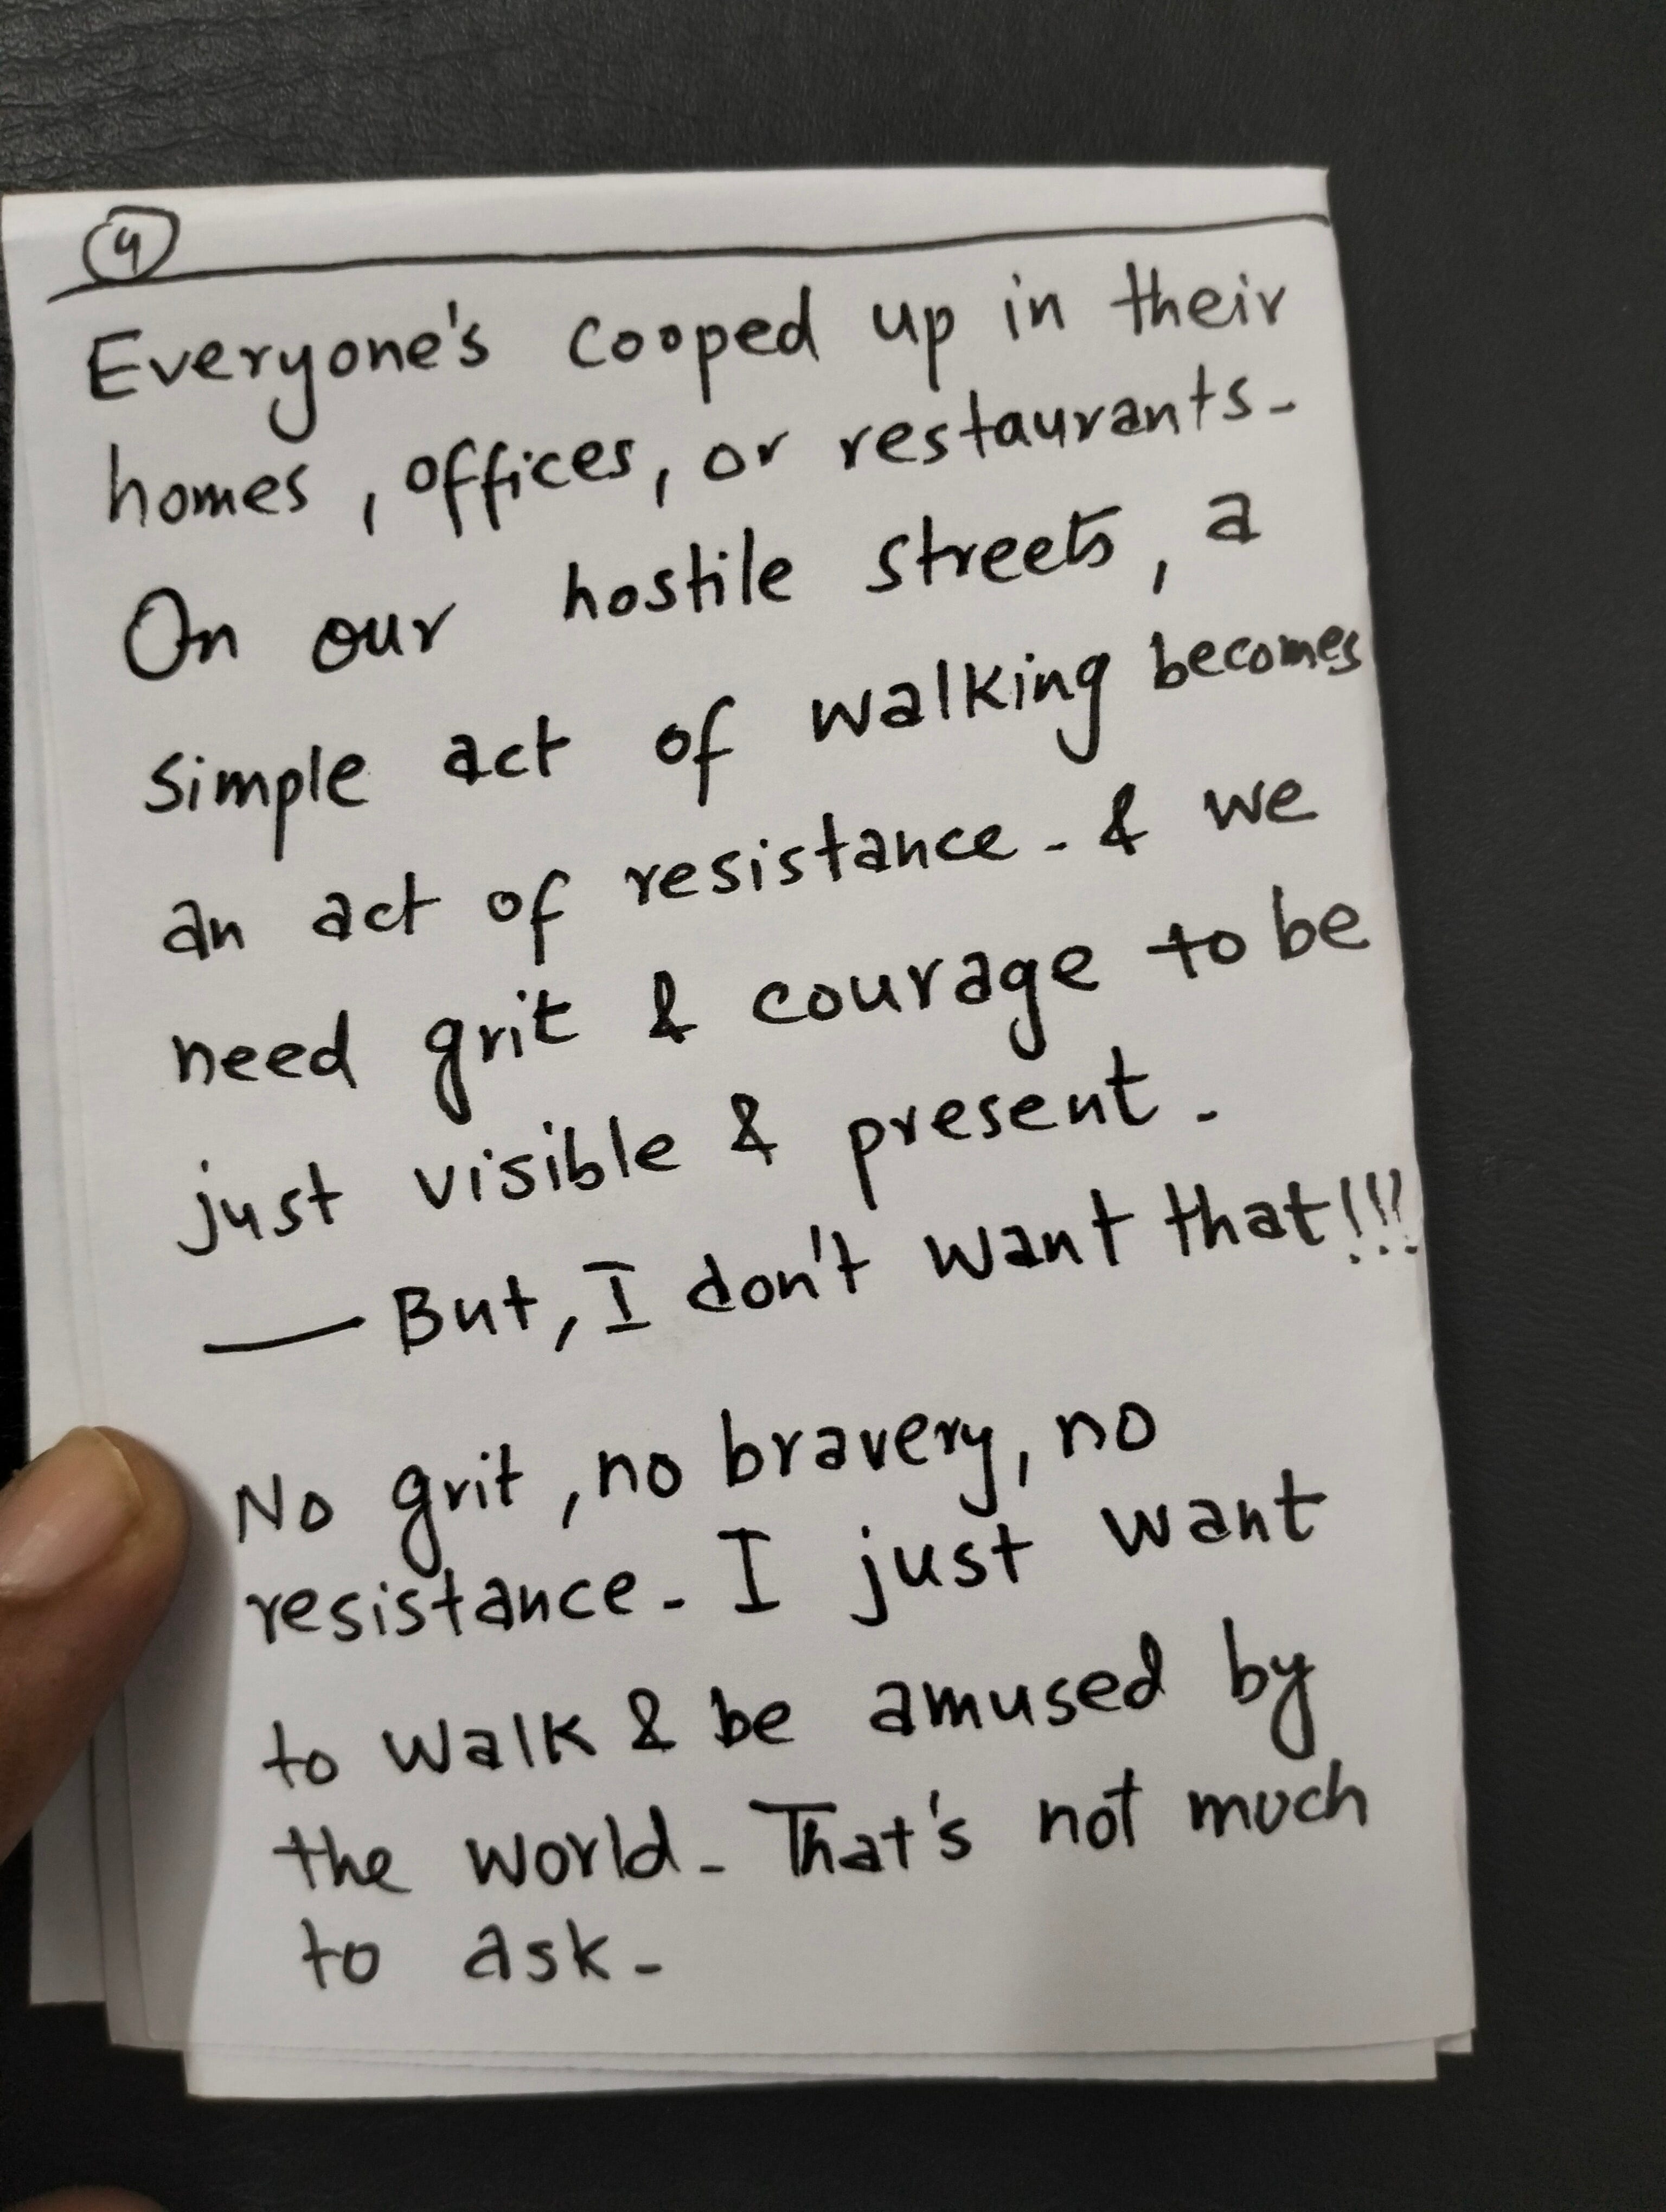 4
Everyone's cooped up in their
homes, offices, or restaurants-
On our hostile streets, a
simple act of walking becomes
an act of resistance - & we
need grit & courage to be
just visible & present -
— But, I don't want that!!!
No grit, no bravery, no
resistance - I just want
to walk & be amused by
the world - That's not much
to ask -